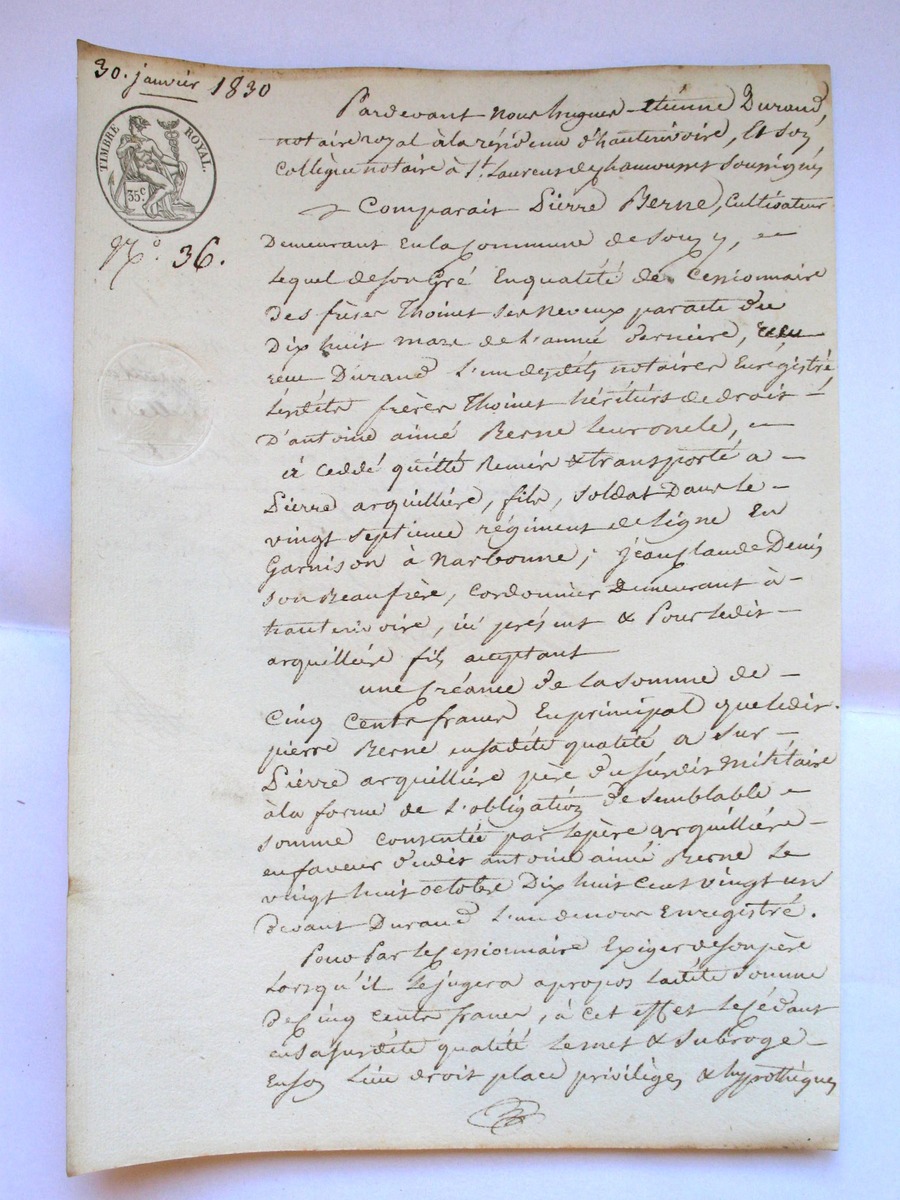 30. janvier 1830
TIMBRE ROYAL.
35 c
N.o 36.
Pardevant nous hugues-étienne Durand,
notaire royal à la résidence d'hauterivoire, et son
Collègue notaire à St Laurent de chamousset soussignés
Comparait Pierre Berne, cultivateur
Demeurant en la Commune de Souzy,
lequel de son Gré en qualité de cessionnaire
des frères Thoinet ses neveux par acte du
Dix huit mars de l'année dernière,
reçu Durand l'un desdits notaires Enrégistré,
lesdits frères Thoinet héritiers de droit
D'antoine aimé Berne leur oncle,
à cédé quitté Remis & transporté a
Pierre arquillière, fils, soldat Dans le
vingt septieme régiment de ligne En
Garnison à Narbonne; jean Claude Denis
son Beaufrère, Cordonnier Demeurant à
hauterivoire, ici présent & Pour ledit
arquillière fils acceptant
une Créance de la somme de
Cinq Cents francs En principal que ledit
pierre Berne en sadite qualité a sur
Pierre arquillière père du susdit Militaire
à la forme de l'obligation de semblable
somme consentie par le père arquillière
en faveur dudit antoine aimé Berne le
vingt huit octobre Dix huit cent vingt un
devant Durand l'un de nous Enregistré.
Pour Par le Cessionnaire Exiger de son père
Lorsqu'il le jugera apropos ladite somme
de Cinq cents francs, à cet effet le Cédant
en sa susdite qualité le met & subroge
En son Lieu droit place privilèges & hypothèques